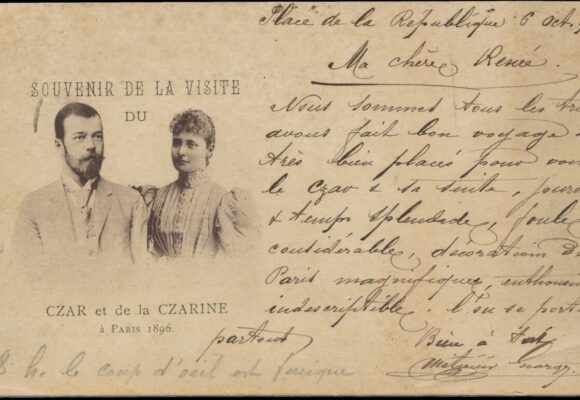 SOUVENIR DE LA VISITE
DU
CZAR et de la CZARINE
à PARIS 1896.
Place de la République 6 Oct.
Ma chère Renée.
Nous sommes tous les
avons fait bon voyage
très bien placés pour
le Czar & sa suite,
& temps splendide, foule
considérable, décorations
Paris magnifiques,
indescriptible. l'on se
partout
Bien à
8 h. le coup d'œil est